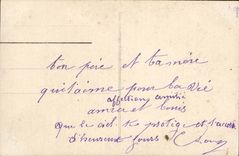 ton père et ta mère
qui t'aime pour la vie
affection amitié
amica et Louis
que le ciel te protège et t'accorde
d'heureux jours